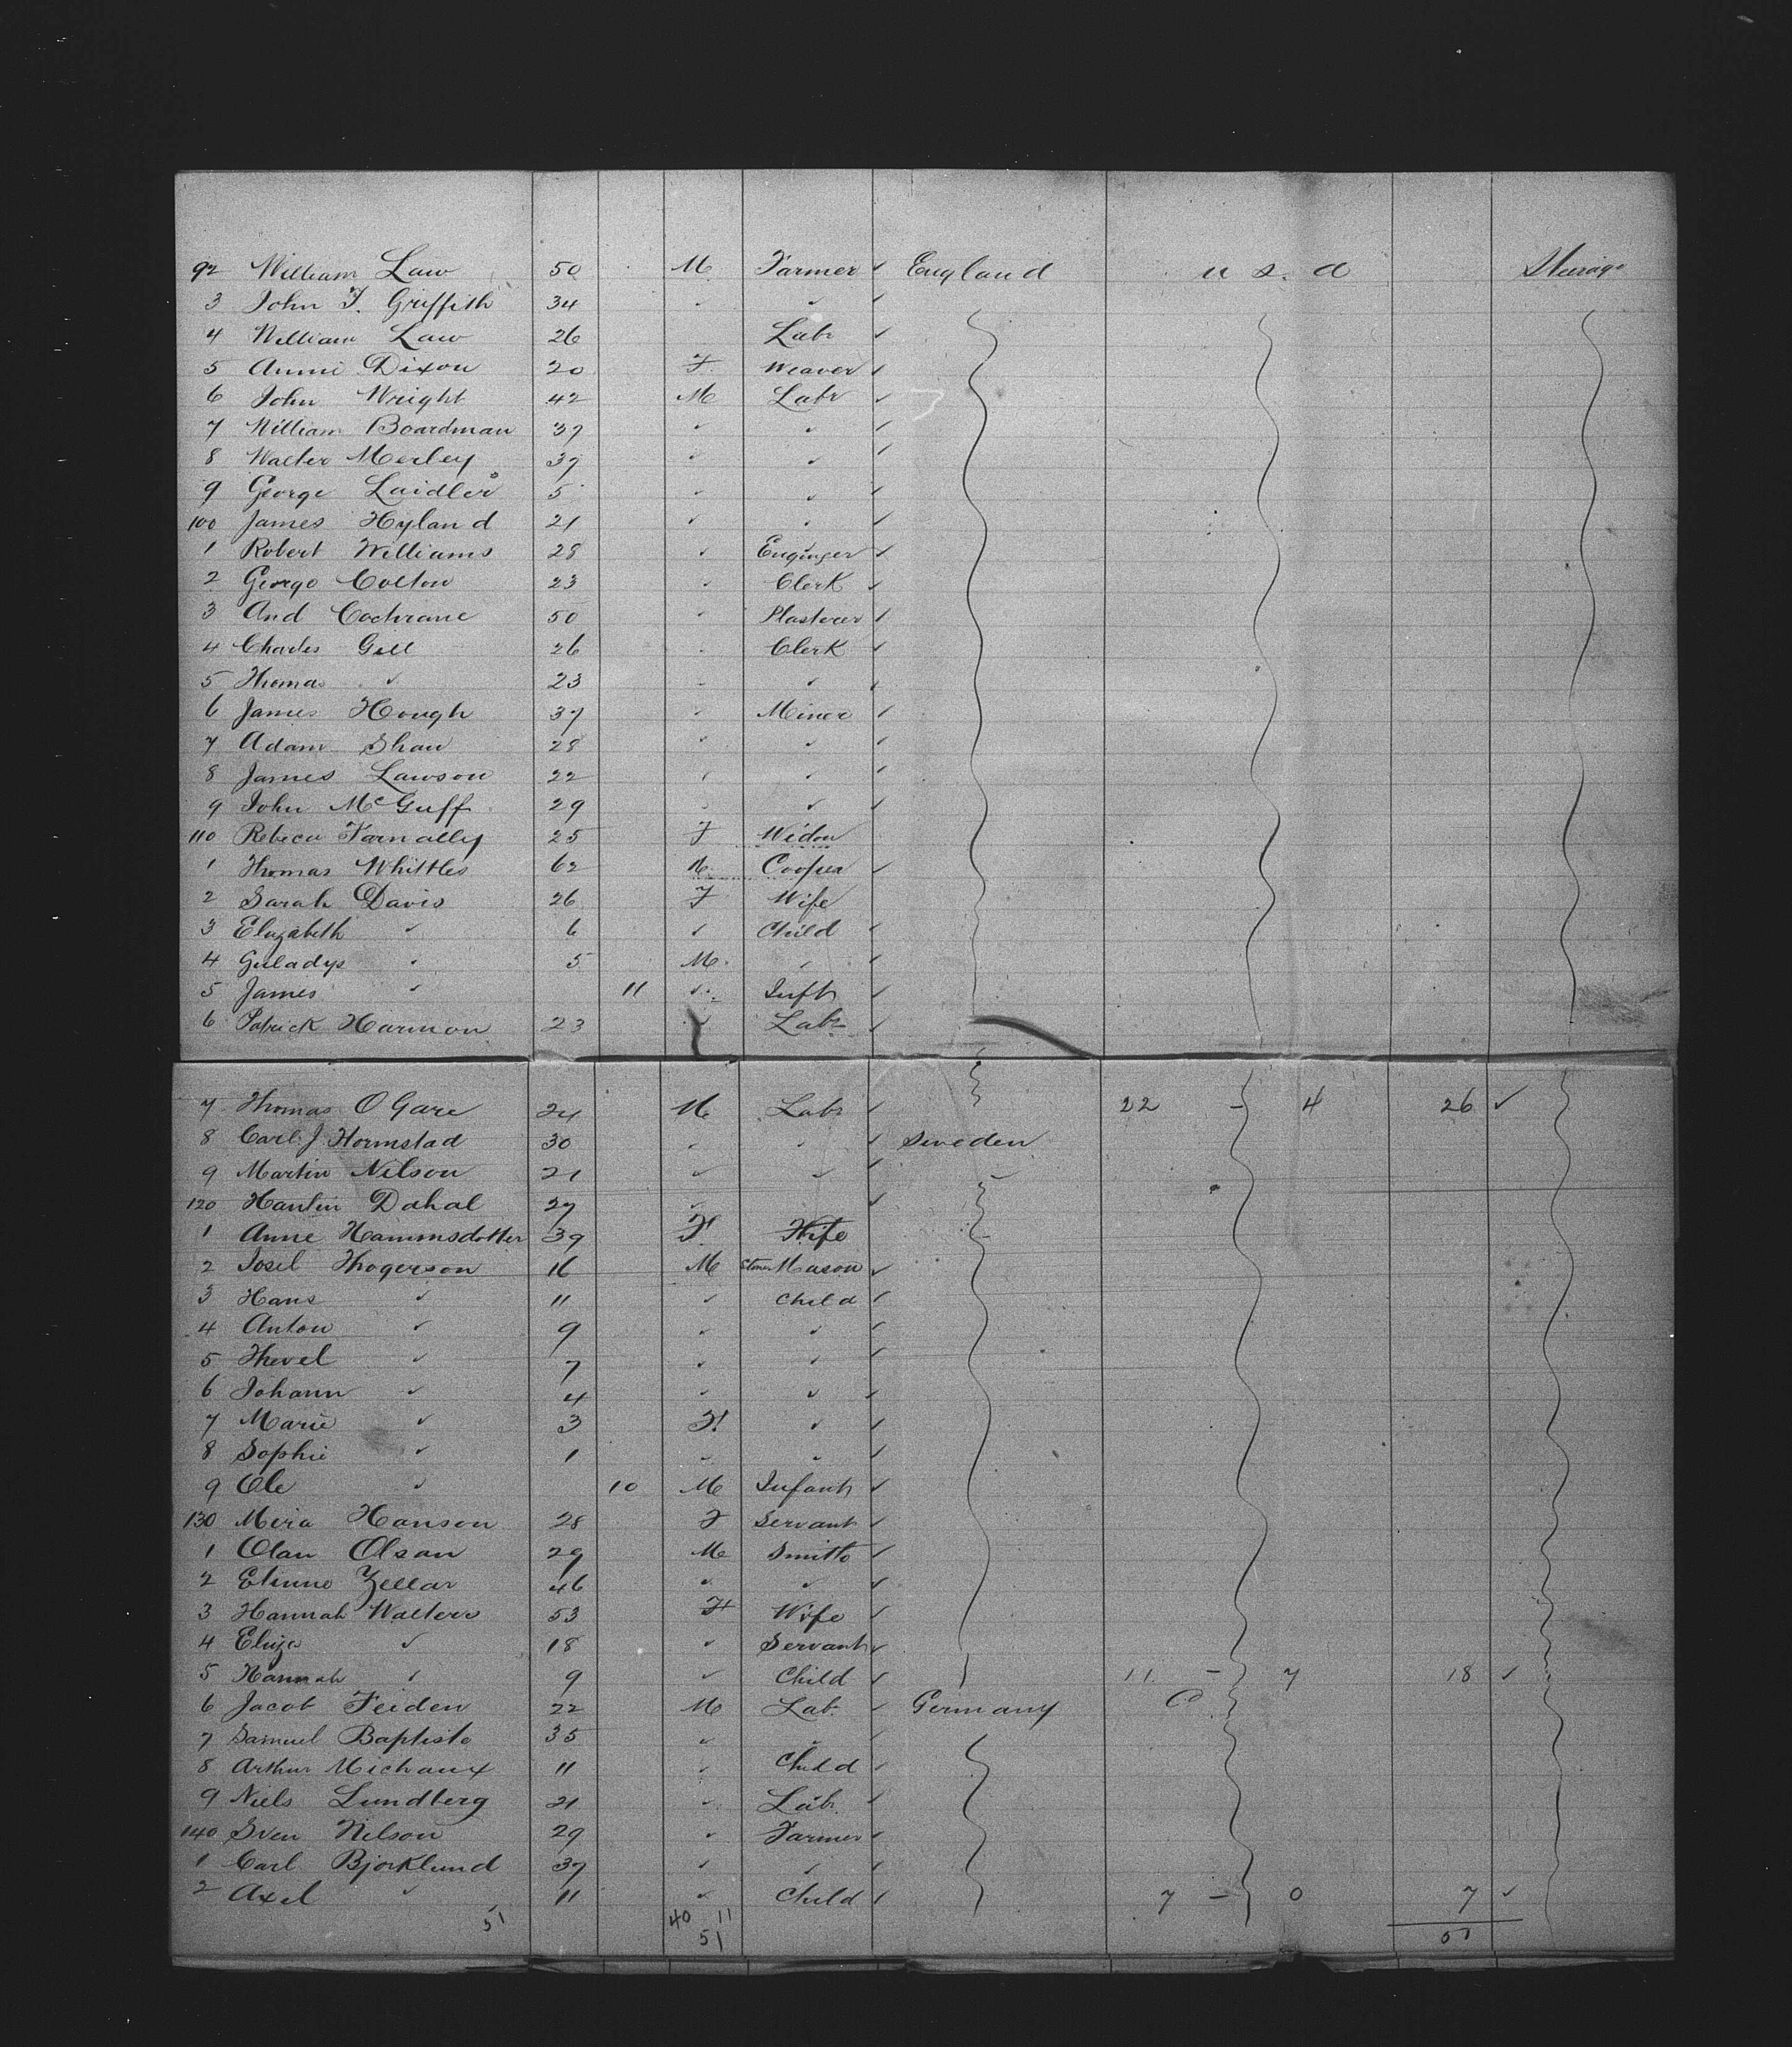 92 William Law 50 M Farmer ✓ England U S. a Steerage
3 John T. Griffith 34 ✓ ✓
4 William Law 26 Labr ✓
5 Annie Dixon 20 F. Weaver ✓
6 John Wright 42 M Labr ✓
7 William Boardman 37 ✓ ✓ ✓
8 Walter Merley 37 ✓ ✓ ✓
9 George Laidler 5 ✓ ✓ ✓
100 James Hyland 21 ✓ ✓ ✓
1 Robert Williams 28 ✓ Enginger ✓
2 George Colton 23 Clerk ✓
3 And Cochrane 50 ✓ Plasterer ✓
4 Charles Gill 26 Clerk ✓
5 Thomas ✓ 23 ✓ ✓
6 James Hough 37 Miner ✓
7 Adam Shaw 28 ✓ ✓ ✓
8 James Lawson 22 ✓ ✓ ✓
9 John McGuff 29 ✓ ✓
110 Rebeca Farnally 25 F Widow
1 Thomas Whittles 62 M Cooper ✓
2 Sarah Davis 26 F Wife
3 Elizabeth ✓ 6 ✓ Child ✓
4 Guladys ✓ 5 M. ✓ ✓
5 James ✓ 11 ✓ Inft ✓
6 Patrick Harmon 23 ✓ Labr ✓
7 Thomas O Gare 24 M Labr ✓ 22 - 4 26 ✓
8 Carl. J. Hormstad 30 ✓ ✓ ✓ Sweden
9 Martin Nilson 21 ✓ ✓ ✓ ✓
120 Hantin Dahal 27 ✓ ✓
1 Anne Hammsdotter 39 F. Wife
2 Josel Thogerson 16 M Stone Mason ✓
3 Hans ✓ 11 ✓ Child ✓
4 Anton ✓ 9 ✓ ✓ ✓
5 Thevel ✓ 7 ✓ ✓ ✓
6 Johann ✓ 4 ✓ ✓ ✓
7 Marie ✓ 3 F. ✓ ✓
8 Sophie ✓ 1 ✓ ✓ ✓
9 Ole ✓ 10 M Infant ✓
130 Mira Hanson 28 F Servant ✓
1 Olan Olsan 29 M Smith ✓
2 Etinne Zellar 46 ✓ ✓ ✓
3 Hannah Walters 53 F Wife ✓
4 Eliza ✓ 18 ✓ Servant ✓
5 Hannah ✓ 9 ✓ Child ✓ 11. - 7 18 ✓
6 Jacob Feiden 22 M Lab. ✓ Germany
7 Samuel Baptiste 35 ✓ ✓ ✓
8 Arthur Michaux 11 ✓ Child ✓
9 Niels Lundberg 21 ✓ Labr. ✓
140 Sven Nilson 29 ✓ Farmer ✓
1 Carl Bjorklund 37 ✓ ✓ ✓
2 Axel ✓ 11 ✓ Child ✓ 7 - 0 7 ✓
51 40 11
51 51